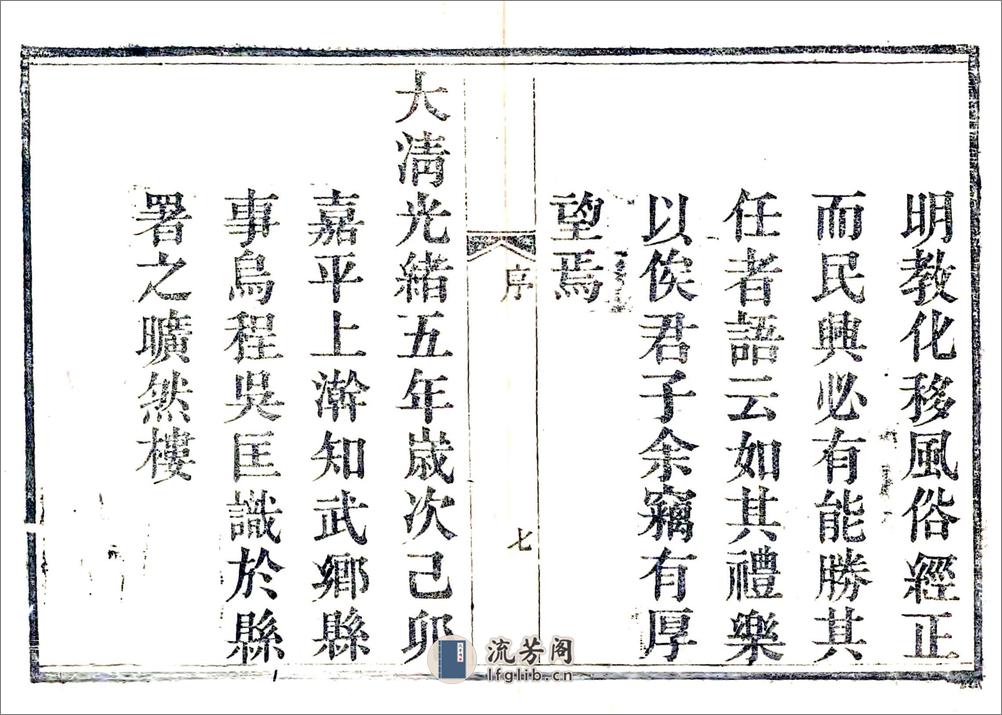 明教化移風俗經正
而民興必有能勝其
任者語云如其禮樂
以俟君子余竊有厚
望焉
序
七
大淸光緒五年歲次己卯
嘉平上澣知武鄉縣
事烏程吳匡識於縣
署之曠然樓
流芳阁
lfglib.cn